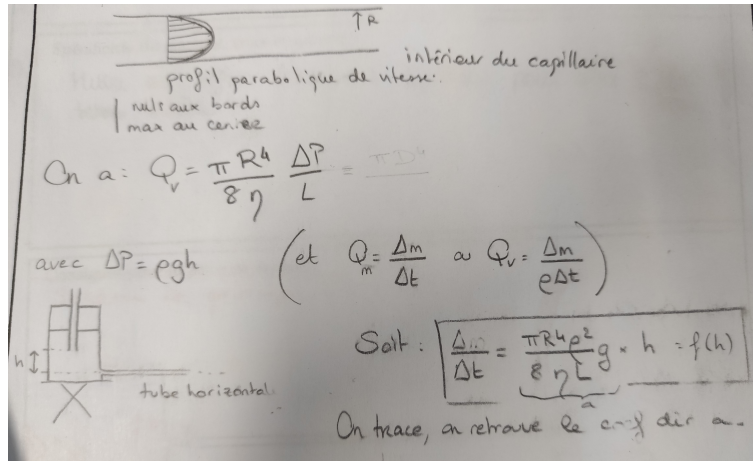 ↑R
intérieur du capillaire
profil parabolique de vitesse.
nuls aux bords
max au centre
On a : Q_v = πR⁴/8η ΔP/L = πD⁴
avec ΔP = ρgh (et Q_m = Δm/Δt ou Q_v = Δm/ρΔt)
Soit : Δm/Δt = πR⁴ρ²/8ηL g × h = f(h)
a
h
tube horizontal
On trace, on retrouve le dir a.